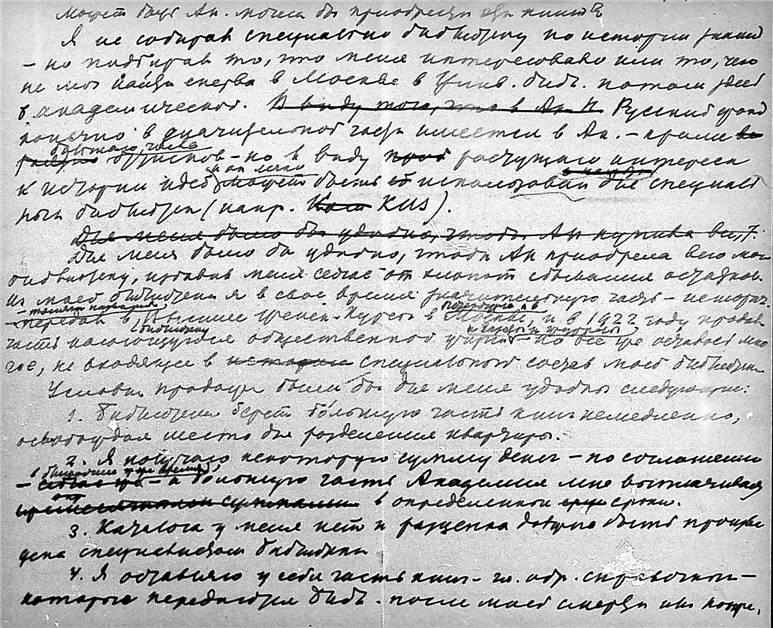 может быть Ак. могла бы приобрести эти книги
Я не собирал специально библиотеку по истории знаний
– но подбирал то, что меня интересовало или то, чего
не мог найти сперва в Москве в Унив. биб. потом здесь
в академической. В виду того, что в Ак. Н. Русский фонд
конечно в значительной части имеется в Ак. – кроме
большого числа
оттисков – но в виду растущего интереса
к истории идей может быть использован для специаль
ной библиотеки (напр. Ком КИЗ).
Для меня было бы удобно, чтобы Ак купила все,
Для меня было бы удобно, чтобы Ак приобрела всю мою
библиотеку, избавив меня сейчас от хлопот сбывания остатков.
Из моей библиотеки я в свое время значительную часть –
передал в Высшие Женск. Курсы в Москве, и в 1922 году продал
библиотеку
часть касающуюся общественной – но все же остается мно
гое, не входящее в историю специального состав моей библиотеки
Условия продажи были бы для меня удобны следующие:
1. Библиотека берет большую часть книг немедленно,
освобождая место для разделения квартиры.
2. Я получаю некоторую сумму денег – по соглашению
в ближайшее время,
– сейчас же – а большую часть Академия мне выплачивает
в определенной сроки.
3. Каталога у меня нет и расценка должна быть произве
дена специалистом библиотеки
4. Я оставляю у себя часть книг – гл. обр. справочной –
которые передаются биб. после моей смерти или